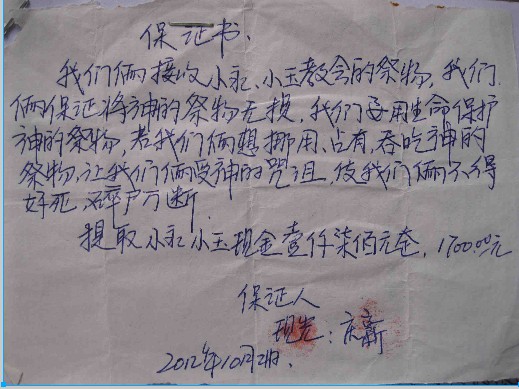 保证书.
我们俩接收小永、小玉教会的祭物,我们
俩保证将神的祭物无损,我们要用生命保护
神的祭物,若我们俩想挪用、占有、吞吃神的
祭物,让我们俩受神的咒诅,使我们俩不得
好死,碎尸万断.
提取小永小玉现金壹仟柒佰元整,1700.00元
保证人
现先:庆新
2012年10月2日.